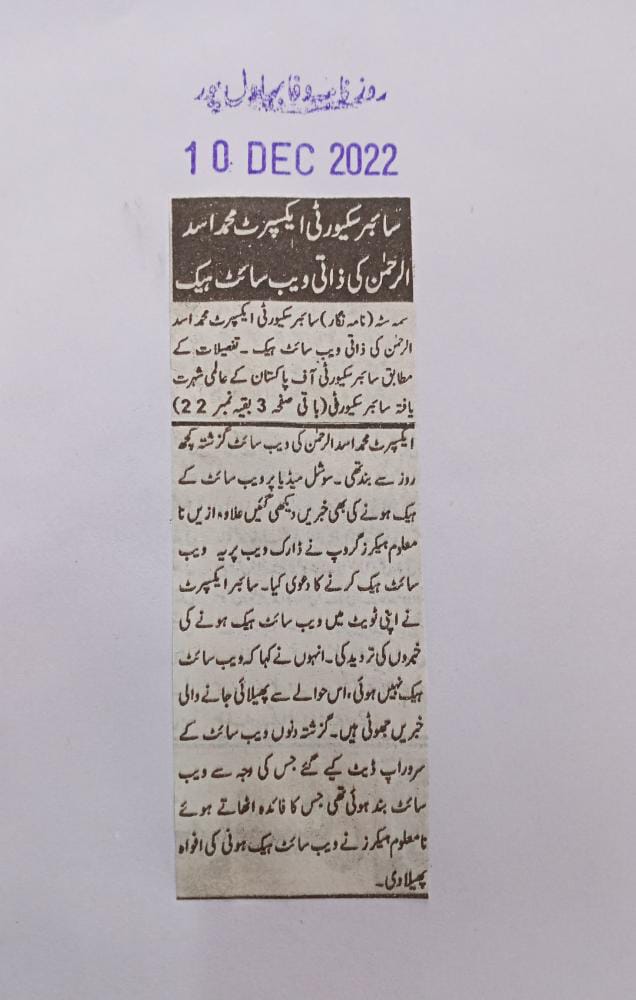 روزنامہ وفا بہاول پور
10 DEC 2022
سائبر سکیورٹی ایکسپرٹ محمد اسد
الرحمٰن کی ذاتی ویب سائٹ ہیک
سمہ سٹہ (نامہ نگار) سائبر سکیورٹی ایکسپرٹ محمد اسد
الرحمٰن کی ذاتی ویب سائٹ ہیک۔ تفصیلات کے
مطابق سائبر سکیورٹی آف پاکستان کے عالمی شہرت
یافتہ سائبر سکیورٹی (باقی صفحہ 3 بقیہ نمبر 22)
ایکسپرٹ محمد اسد الرحمٰن کی ویب سائٹ گزشتہ کچھ
روز سے بند تھی۔ سوشل میڈیا پر ویب سائٹ کے
ہیک ہونے کی بھی خبریں دیکھی گئیں علاوہ ازیں نا
معلوم ہیکرز گروپ نے ڈارک ویب پر یہ ویب
سائٹ ہیک کرنے کا دعوی کیا۔ سائبر ایکسپرٹ
نے اپنی ٹویٹ میں ویب سائٹ ہیک ہونے کی
خبروں کی تردید کی۔ انہوں نے کہا کہ ویب سائٹ
ہیک نہیں ہوئی، اس حوالے سے پھیلائی جانے والی
خبریں جھوٹی ہیں۔ گزشتہ دنوں ویب سائٹ کے
سرور اپ ڈیٹ کیے گئے جس کی وجہ سے ویب
سائٹ بند ہوئی تھی جس کا فائدہ اٹھاتے ہوئے
نامعلوم ہیکرز نے ویب سائٹ ہیک ہونی کی افواہ
پھیلا دی۔